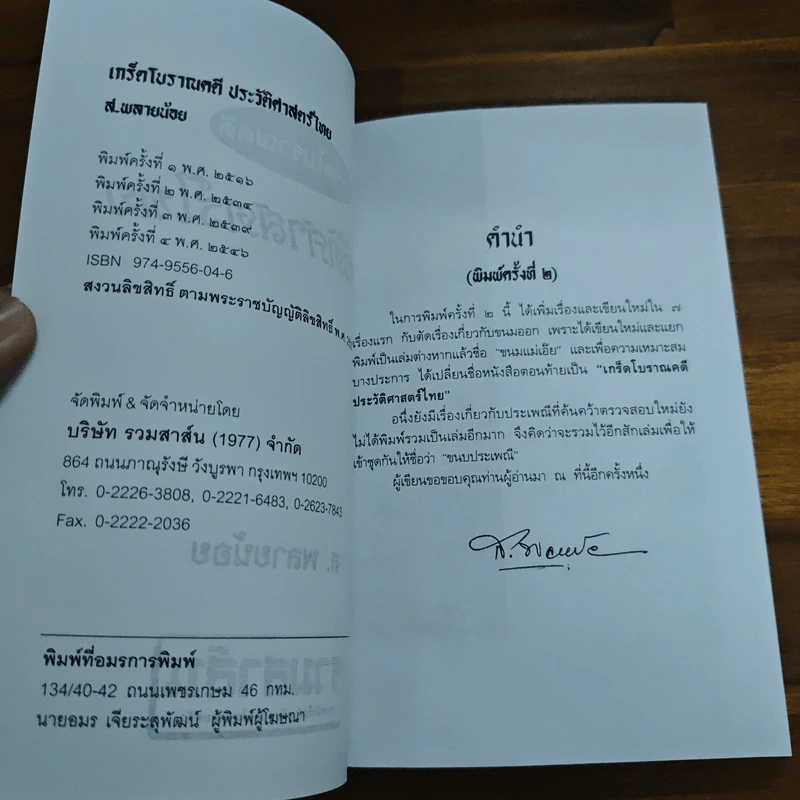 เกร็ดโบราณคดี ประวัติศาสตร์ไทย
ส.พลายน้อย
พิมพ์ครั้งที่ ๑ พ.ศ. ๒๕๑๖
พิมพ์ครั้งที่ ๒ พ.ศ. ๒๕๓๔
พิมพ์ครั้งที่ ๓ พ.ศ. ๒๕๓๙
พิมพ์ครั้งที่ ๔ พ.ศ. ๒๕๔๖
ISBN 974-9556-04-6
สงวนลิขสิทธิ์ ตามพระราชบัญญัติลิขสิทธิ์
จัดพิมพ์ & จัดจำหน่ายโดย
บริษัท รวมสาส์น (1977) จำกัด
864 ถนนภาณุรังษี วังบูรพา กรุงเทพฯ 10200
โทร. 0-2226-3808, 0-2221-6483, 0-2623-7843
Fax. 0-2222-2036
พิมพ์ที่อมรการพิมพ์
134/40-42 ถนนเพชรเกษม 46 กทม.
นายอมร เจียระสุพัฒน์ ผู้พิมพ์ผู้โฆษณา
คำนำ
(พิมพ์ครั้งที่ ๒)
ในการพิมพ์ครั้งที่ ๒ นี้ ได้เพิ่มเรื่องและเขียนใหม่ใน ๗
เรื่องแรก กับตัดเรื่องเกี่ยวกับขนมออก เพราะได้เขียนใหม่และแยก
พิมพ์เป็นเล่มต่างหากแล้วชื่อ "ขนมแม่เอ๊ย" และเพื่อความเหมาะสม
บางประการ ได้เปลี่ยนชื่อหนังสือตอนท้ายเป็น "เกร็ดโบราณคดี
ประวัติศาสตร์ไทย"
อนึ่งยังมีเรื่องเกี่ยวกับประเพณีที่ค้นคว้าตรวจสอบใหม่ยัง
ไม่ได้พิมพ์รวมเป็นเล่มอีกมาก จึงคิดว่าจะรวมไว้อีกสักเล่มเพื่อให้
เข้าชุดกันให้ชื่อว่า "ขนบประเพณี"
ผู้เขียนขอขอบคุณท่านผู้อ่านมา ณ ที่นี้อีกครั้งหนึ่ง